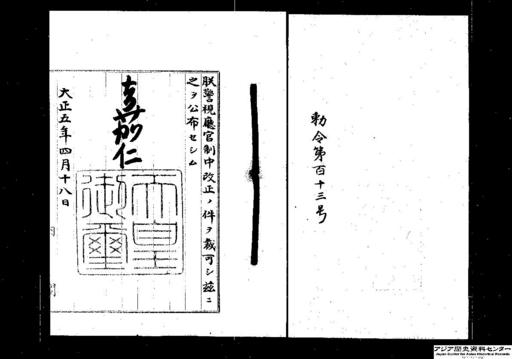 勅令第百十三号
朕警視廳官制中改正ノ件ヲ裁可シ茲ニ
之ヲ公布セシム
嘉仁
天皇御璽
大正五年四月十八日
アジア歴史資料センター
Japan Center for Asian Historical Records